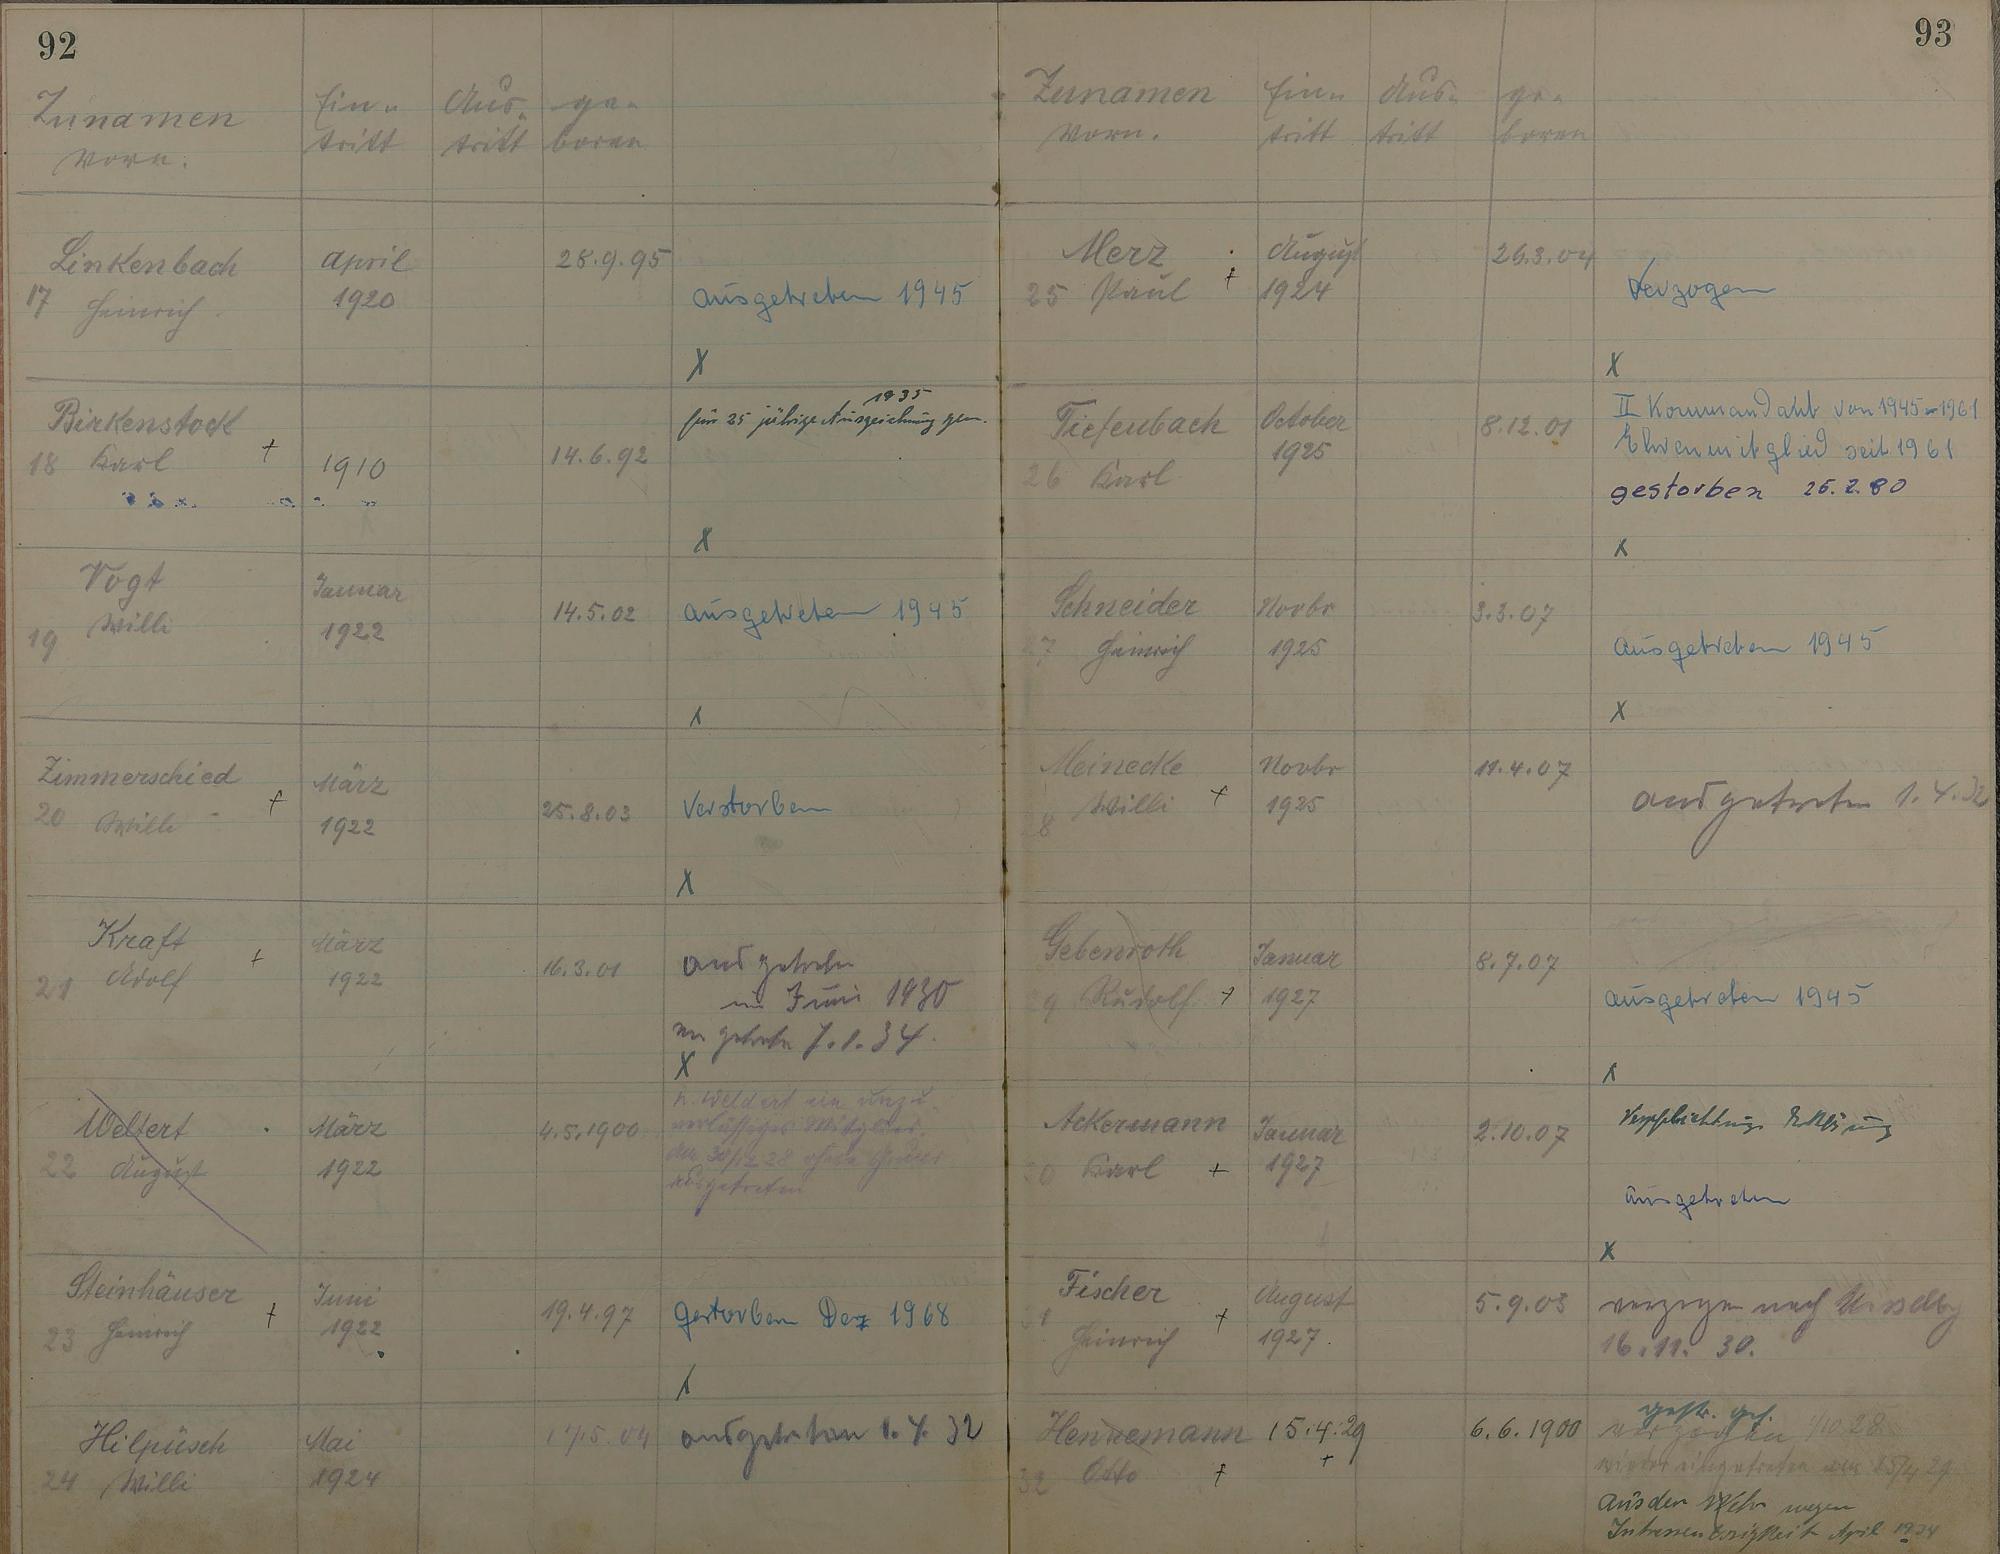 92
Zunamen
Vorn.
Ein-
tritt
Aus-
tritt
ge-
boren
Linkenbach
17 Heinrich
April
1920
28.9.95
ausgetreten 1945
X
Birkenstock
18 Karl +
1910
14.6.92
1935
für 25 jährige Auszeichnung
X
Vogt
19 Willi
Januar
1922
14.5.02
ausgetreten 1945
x
Zimmerschied
20 Willi +
März
1922
25.8.03
Verstorben
X
Kraft
21 Adolf +
März
1922
16.3.01
ausgetreten
im Juni 1930
X
Weltert
22 August
März
1922
4.5.1900
ausgetreten
Steinhäuser
23 Heinrich +
Juni
1922
19.4.97
gestorben Dez 1968
x
Hilpüsch
24 Willi
Mai
1924
ausgetreten 1.4.32
93
Zunamen
Vorn.
Ein-
tritt
Aus-
tritt
ge-
boren
Merz
25 Paul +
August
1924
26.3.04
Verzogen
X
Tiefenbach
26 Karl
October
1925
8.12.01
II Kommandant von 1945-1961
Ehrenmitglied seit 1961
gestorben 26.2.80
x
Schneider
27 Heinrich
Novbr
1925
3.3.07
ausgetreten 1945
X
Meinecke
28 Willi +
Novbr
1925
11.4.07
ausgetreten 1.4.32
Gebenroth
29 Rudolf +
Januar
1927
8.7.07
ausgetreten 1945
x
Ackermann
30 Karl +
Januar
1927
2.10.07
Verpflichtungs Erklärung
ausgetreten
X
Fischer
31 Heinrich +
August
1927.
5.9.03
verzogen nach
16.11.30.
Hennemann
32 Otto +
15.4.29
+
6.6.1900
verzogen 1/10 28
wieder eingetreten am 15/4 29
aus der Wehr wegen
April 1934